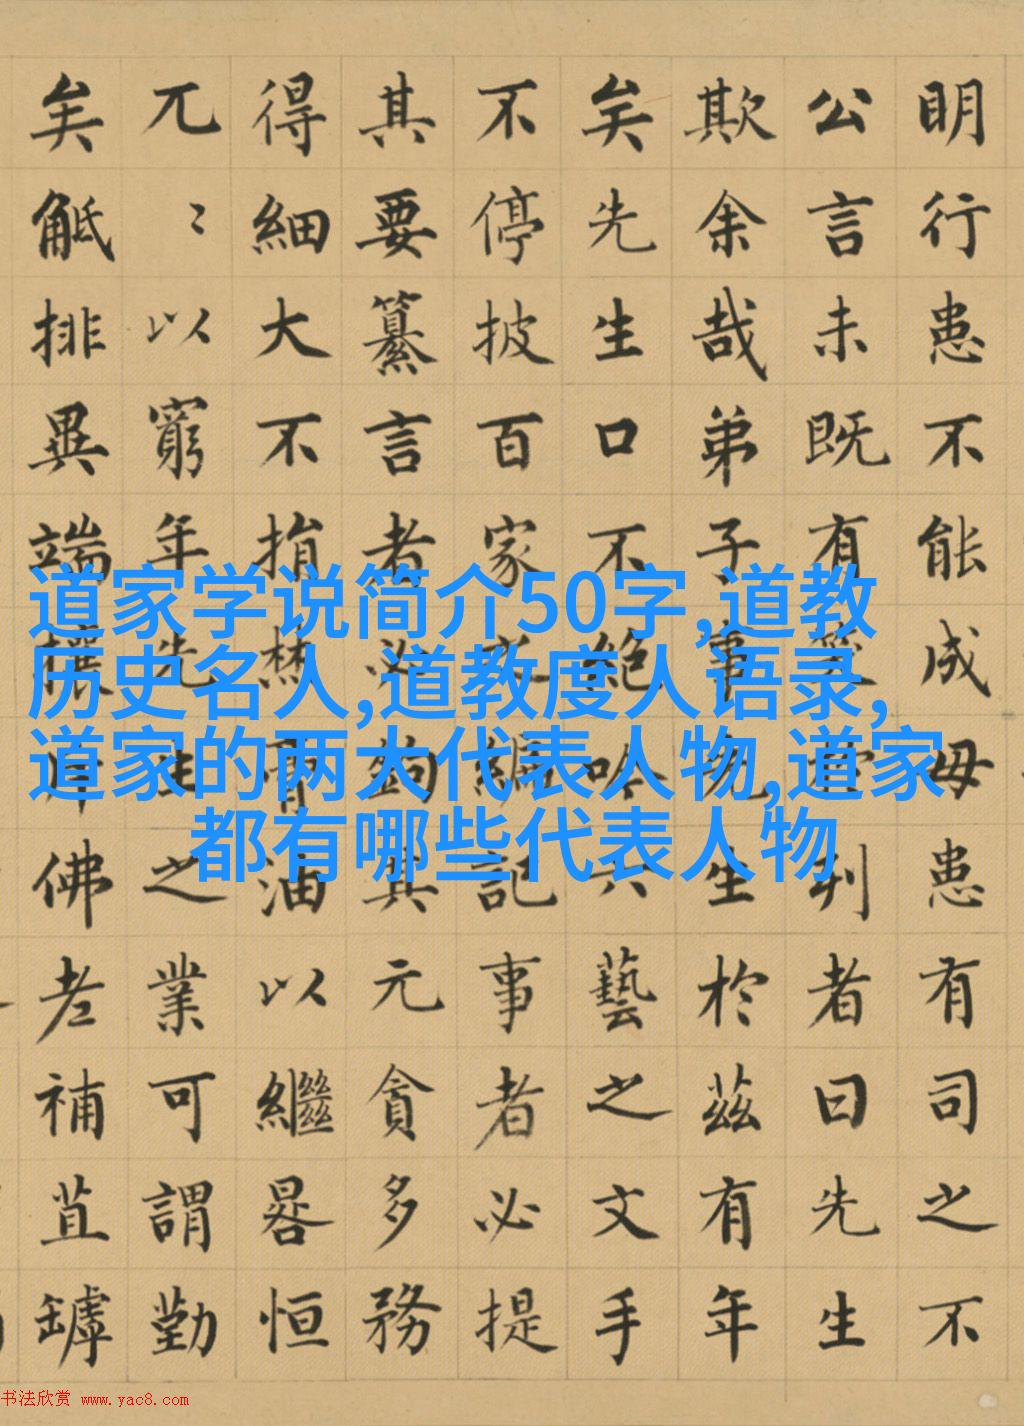 明行患不能成毋患有司之不
公言未既有笑於列者曰先生
欺余哉弟子事先生於茲有年
矣先生口不絕吟六藝之文手
不停披百家之編記事者必提
其要纂言者必鉤其元貪多務
得細大不捐焚膏油以繼晷恒
兀〻以窮年先生之業可謂勤
矣觝排異端攘斥佛老補苴罅
道家学说简介50字,道教
历史名人,道教度人语录,
道家的两大代表人物,道家
都有哪些代表人物
书法欣赏 www.yac8.com